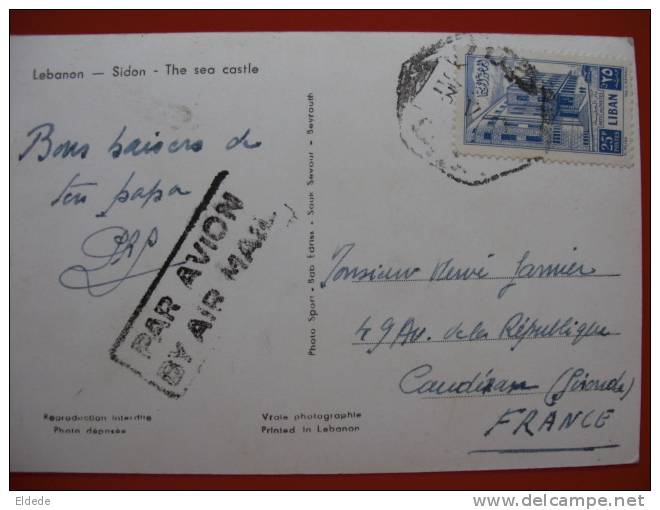 Lebanon — Sidon - The sea castle
Bons baisers de
ton papa
PAR AVION
BY AIR MAIL
Reproduction interdite
Photo déposée
Vraie photographie
Printed in Lebanon
Photo Sport - Bab Edriss - Souk Seyour - Beyrouth
25P
LIBAN
٢٥
Monsieur Hervé Garnier
49 Av. de la République
Caudéran (Gironde)
FRANCE
Eldede
delcampe.net